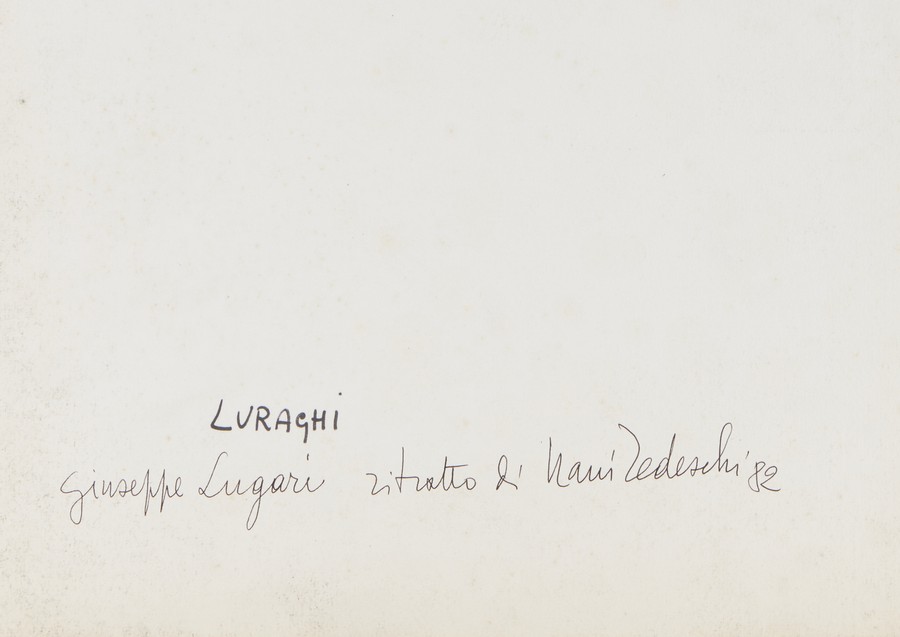 LURAGHi
Giuseppe Lugari ritratto di Nani Tedeschi 82